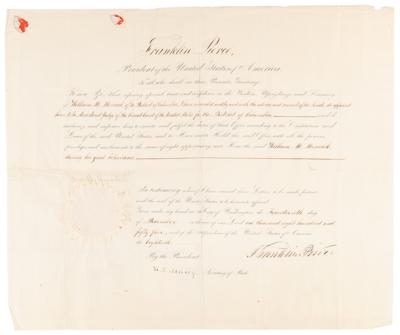 Franklin Pierce,
President of the United States of America.
To all who shall see these Presents, Greeting:
Know Ye; That reposing special trust and confidence in the Wisdom, Uprightness and Learning
of William M. Merrick of the District of Columbia, I have nominated, and by and with the advice and consent of the Senate, do appoint
him to be Assistant Judge of the Circuit Court of the United States for the District of Columbia and do
authorize and empower him to execute and fulfil the duties of that Office according to the Constitution and
Laws of the said United States, and to Have and to Hold the said Office with all the powers,
privileges and emoluments to the same of right appertaining unto Him the said William M. Merrick
during his good behaviour.
In testimony whereof I have caused these Letters to be made patent
and the seal of the United States to be hereunto affixed.
Given under my hand at the City of Washington the Fourteenth day
of December in the year of our Lord one thousand eight hundred and
fifty four, and of the Independence of the United States of America
the
Franklin Pierce
By the President:
W. L. Marcy, Secretary of State.